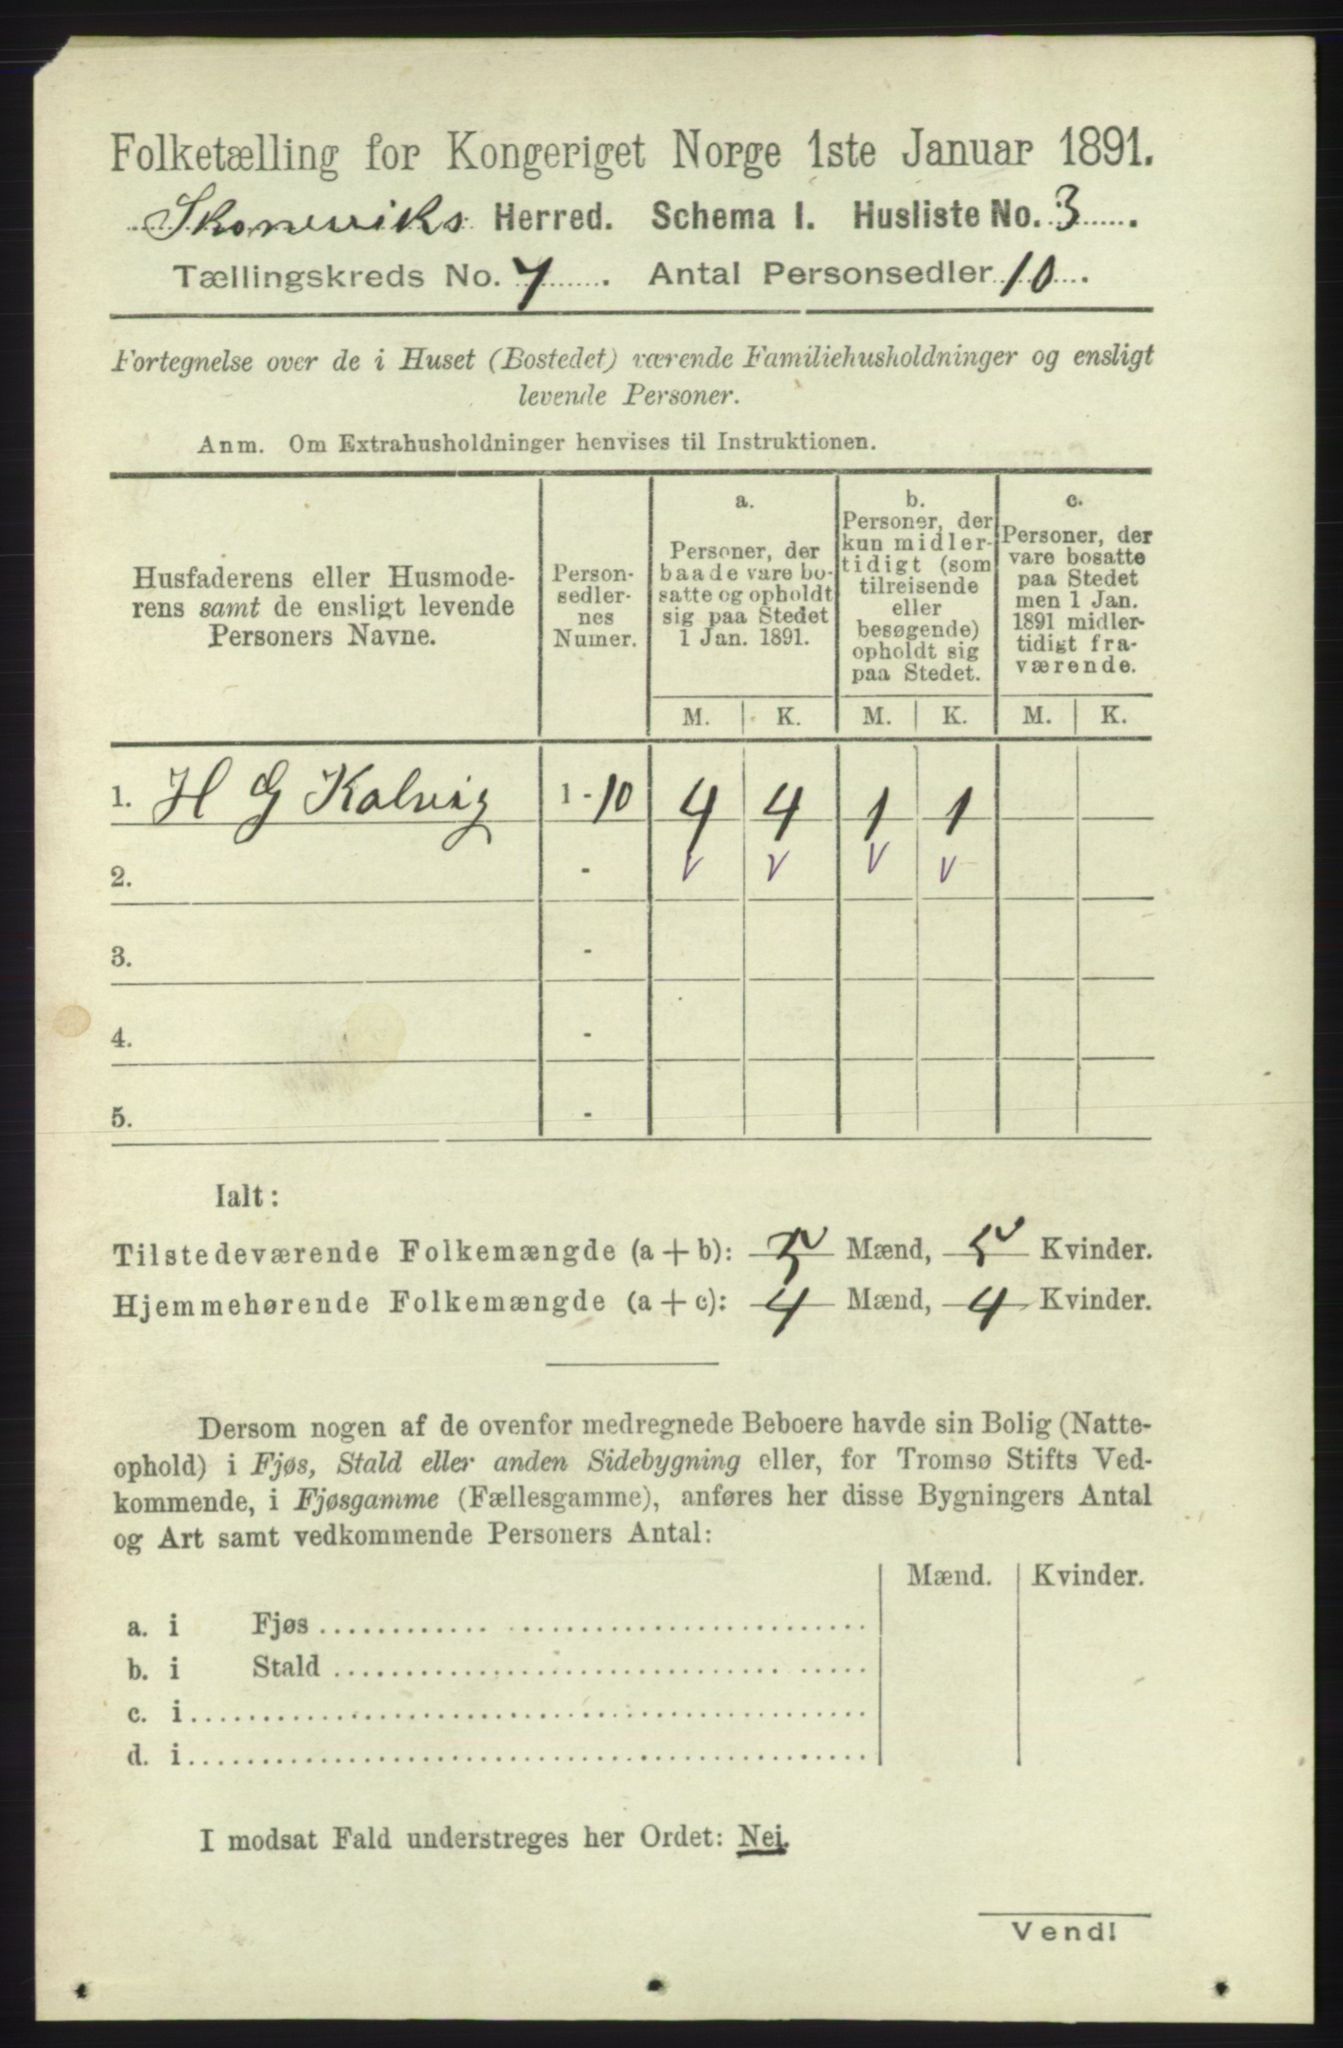 Folketælling for Kongeriget Norge 1ste Januar 1891.
Skoneviks Herred. Schema I. Husliste No. 3.
Tællingskreds No. 7. Antal Personsedler 10.
Fortegnelse over de i Huset (Bostedet) værende Familiehusholdninger og ensligt
levende Personer.
Anm. Om Extrahusholdninger henvises til Instruktionen.
Husfaderens eller Husmode-
rens samt de ensligt levende
Personers Navne.
Person-
sedler-
nes
Numer.
a.
Personer, der
baade vare bo-
satte og opholdt
sig paa Stedet
1 Jan. 1891.
b.
Personer, der
kun midler-
tidigt (som
tilreisende
eller
besøgende)
opholdt sig
paa Stedet.
c.
Personer, der
vare bosatte
paa Stedet
men 1 Jan.
1891 midler-
tidigt fra-
værende.
M. K. M. K. M. K.
1. H G Kalvig 1-10 4 4 1 1
2. - v v v v
3. -
4. -
5. -
Ialt:
Tilstedeværende Folkemængde (a + b): 5 Mænd, 5 Kvinder.
Hjemmehørende Folkemængde (a + c): 4 Mænd, 4 Kvinder.
Dersom nogen af de ovenfor medregnede Beboere havde sin Bolig (Natte-
ophold) i Fjøs, Stald eller anden Sidebygning eller, for Tromsø Stifts Ved-
kommende, i Fjøsgamme (Fællesgamme), anføres her disse Bygningers Antal
og Art samt vedkommende Personers Antal:
Mænd. Kvinder.
a. i Fjøs
b. i Stald
c. i
d. i
I modsat Fald understreges her Ordet: Nei.
Vend!